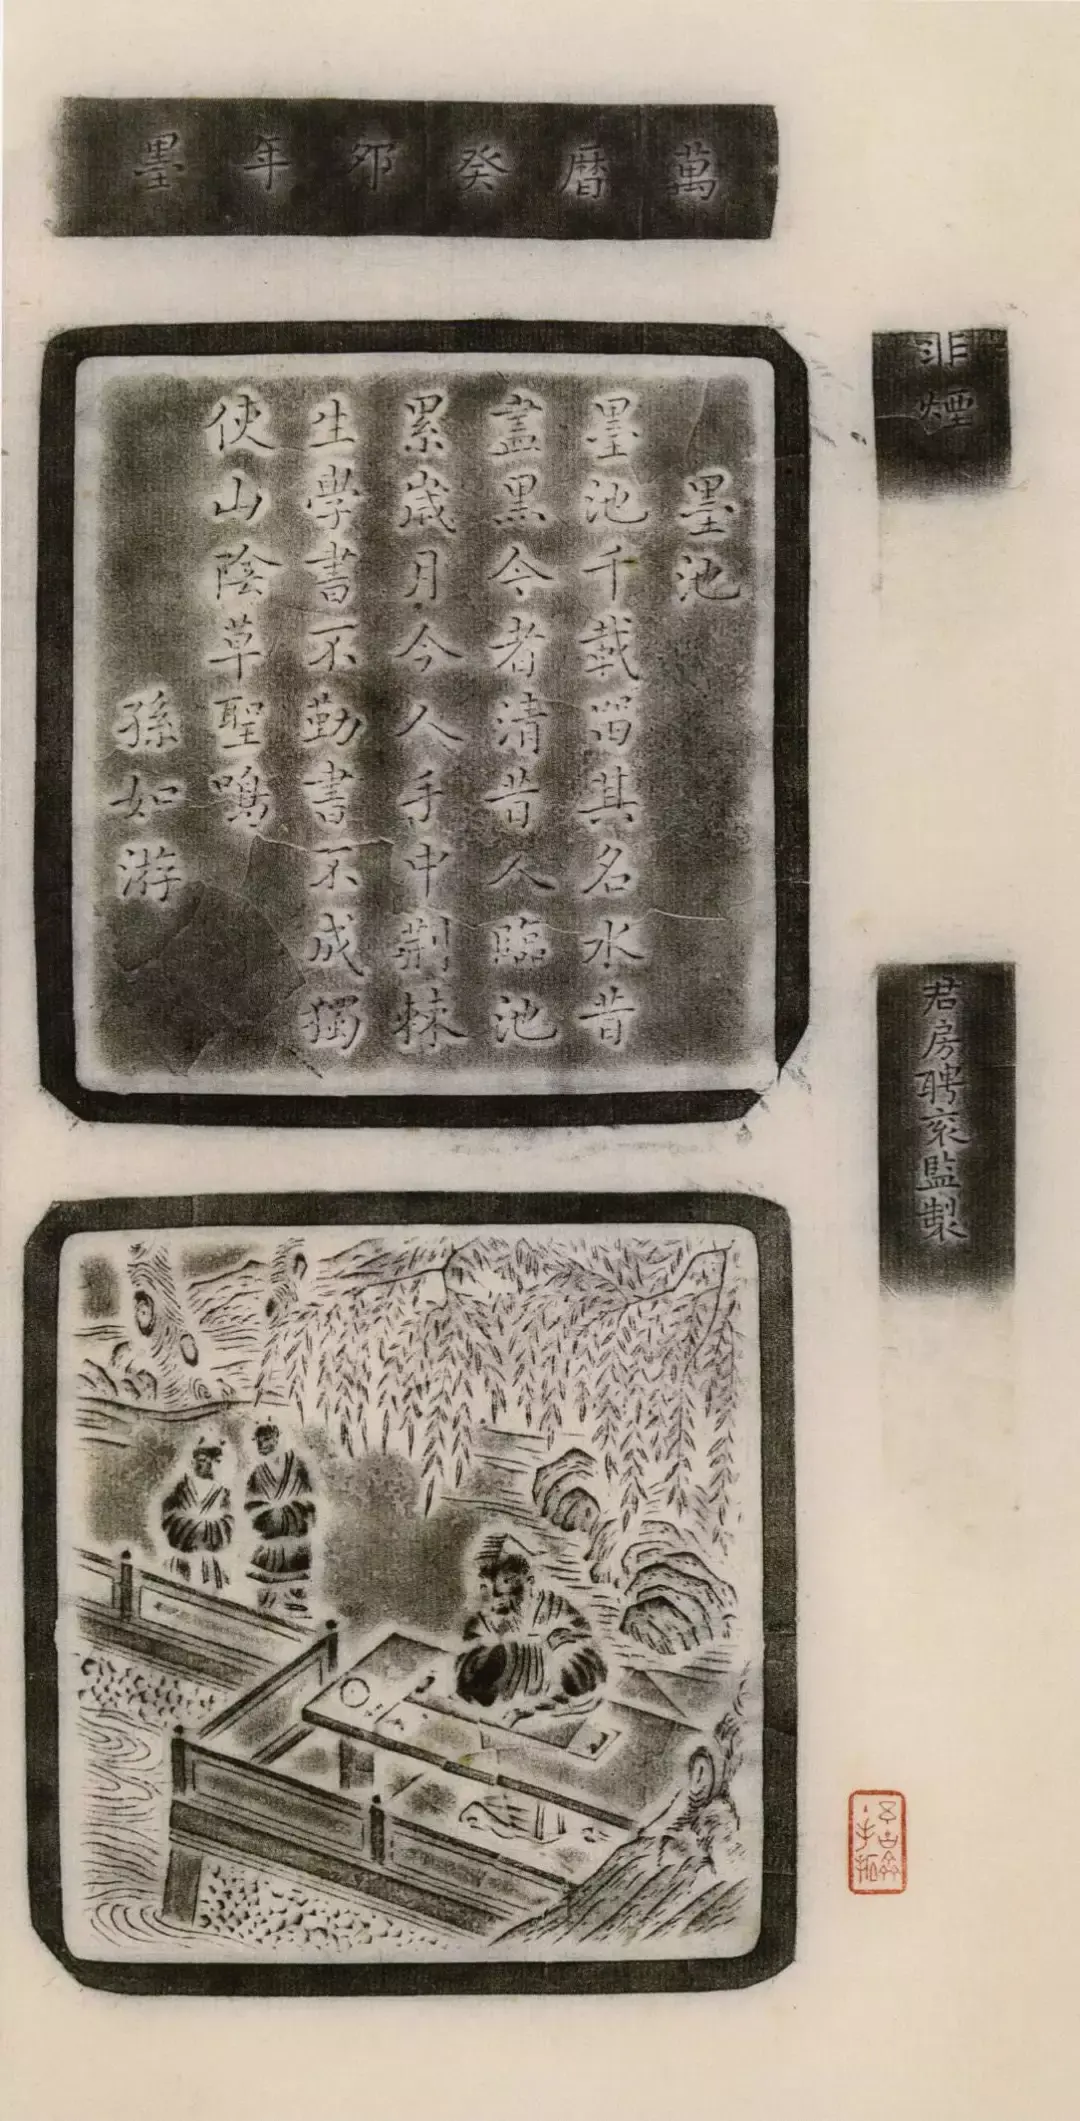 萬曆癸卯年墨
墨池
墨池千載留其名水昔
盡黑今者清昔人臨池
累歲月今人手中荆棘
生學書不勤書不成獨
使山陰草聖鳴
孫如游
非煙
君房聘衮監製